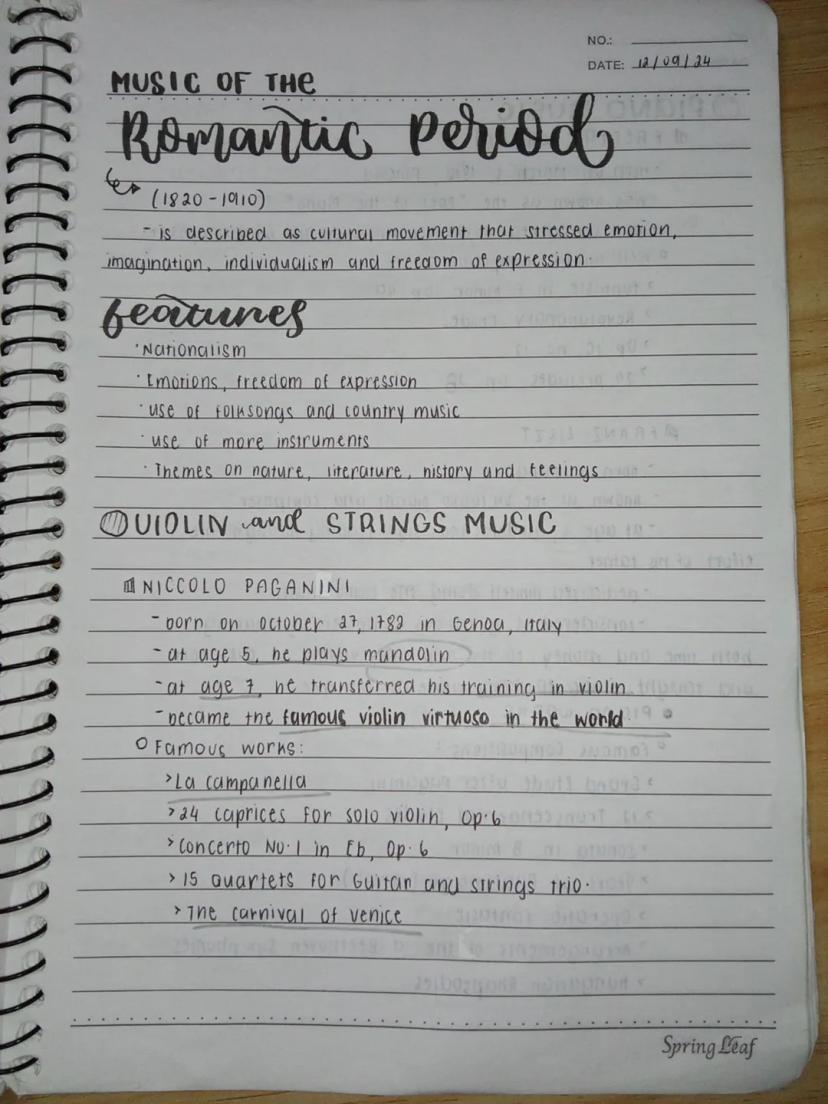 NO.:
DATE: 12/09/24
MUSIC OF THE
Romantic Period
(1820-1910)
- is described as cultural movement that stressed emotion,
imagination, individualism and freedom of expression.
features
· Nationalism
· Emotions, freedom of expression
· use of folksongs and country music
· use of more instruments
· Themes on nature, literature, history and feelings
VIOLIN and STRINGS MUSIC
NICCOLO PAGANINI
- born on October 27, 1782 in Genoa, Italy
- at age 5, he plays mandolin
- at age 7, he transferred his training in violin
- became the famous violin virtuoso in the world
Famous works:
> La campanella
> 24 caprices for solo violin, Op. 6
> Concerto No. 1 in Eb, Op. 6
> 15 Quartets for Guitar and strings trio.
> The carnival of Venice
Spring Leaf